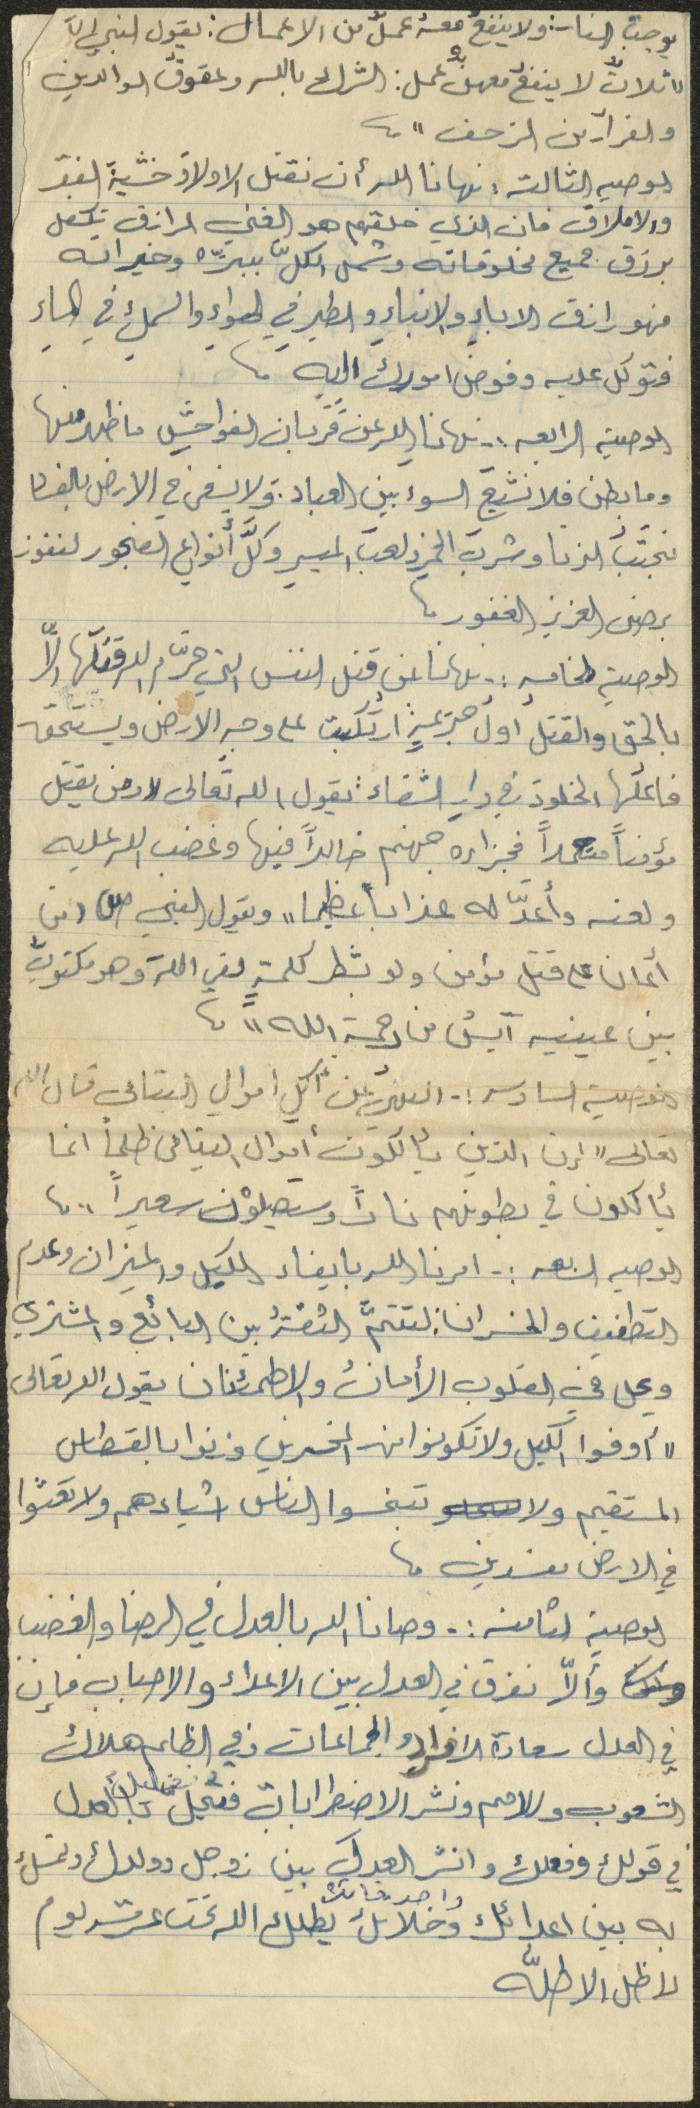 يوجبُ النار: ولا ينفعُ معهُ عملٌ من الاعمال: يقول النبي
"ثلاثٌ لا ينفعُ معهنَّ عمل: الشرك بالله وعقوقُ الوالدين
والفرار من الزحف"
الوصيه الثالثه: نهانا الله أن نقتل الاولادَ خشيةَ الفقر
والاملاق فان الذي خلقهم هو الغني الرازق تكفل
برزق جميع مخلوقاته وشمل الكلَّ ببرّه وخيراته
فهو رازق الاباءِ والابناءِ والطير في الهواءِ والسمكِ في الماءِ
فتوكل عليه وفوض امورك اليه
الوصية الرابعه :- نهانا الله عن قربان الفواحشِ ما ظهر منها
وما بطن فلا نشيعَ السوء بين العباد: ولا نسعى في الارض بالفساد
نجتنبُ الزنا وشربَ الخمر ولعبَ الميسر وكلَّ أنواع الفجور لنفوز
برضى العزيز الغفور
الوصية الخامسه :- نهانا عن قتل النفس التي حرّم الله قتلَها الّا
بالحق والقتلُ أولُ جريمةٍ ارتُكبت على وجه الارض ويستحق
فاعلُها الخلودَ في دارِ الشقاء: يقول الله تَعالى "ومن يقتل
مؤمناً متعمداً فجزاءه جهنم خالداً فيها وغضب الله عليه
ولعنه وأعدّ له عذاباً عظيما" ويقول النبي ص "من
أعان على قتل مؤمن ولو بشطر كلمةٍ لقي اللهَ وهو مكتوبٌ
بين عينيه آيسٌ من رحمة الله"
الوصية السادسه :- النهيُ عن أكلِ اموالِ اليتامى قال الله
تعالى "ان الذين يأكلون أموال اليتامى ظلماً انما
يأكلون في بطونهم ناراً وسيصلوْن سعيراً"
الوصيه السابعه :- امرنا الله بايفاء الكيل والميزان وعدم
التطفيف والخسران: لتتمَّ الثقةُ بين البائع والمشتري
ويحل في القلوب الأمانُ والاطمئنان يقول الله تعالى
"أوفوا الكيل ولا تكونوا من المخسرين وزنوا بالقسطاس
المستقيم ولا تبخسوا الناس اشياءهم ولا تعثوا
في الارض مفسدين
الوصية الثامنه :- وصانا الله بالعدل في الرضا والغضب
وألاّ نفرق في العدل بين الاعداء والاحباب فإن
في العدل سعادة الافراد والجماعات وفي الظلم هلاك
الشعوب والامم ونشر الاضطرابات فتحلَّ بالعدل
في قولك وفعلك وانشر العدل بين زوجك وولدك وتمسك
به بين اعدائك وخلانك يظلك الله تحت عرشه يوم
لا ظل الا ظلّه